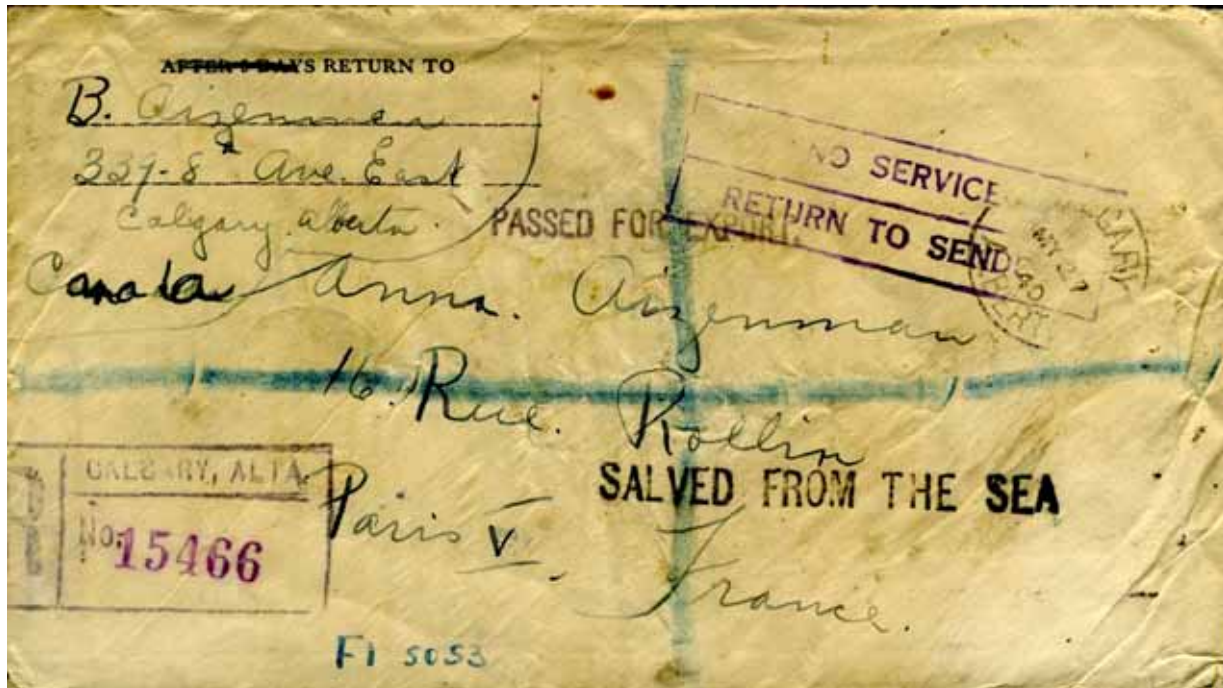 AFTER 5 DAYS RETURN TO
B. Aizenman
337-8th Ave. East
Calgary Alberta.
Canada
NO SERVICE
RETURN TO SEND
PASSED FOR EXPORT.
CALGARY
MY 27
40
ALBERT
Anna. Aizenman
16, Rue. Rollin
Paris V.
France.
SALVED FROM THE SEA
R
CALGARY, ALTA.
No. 15466
FI 5053